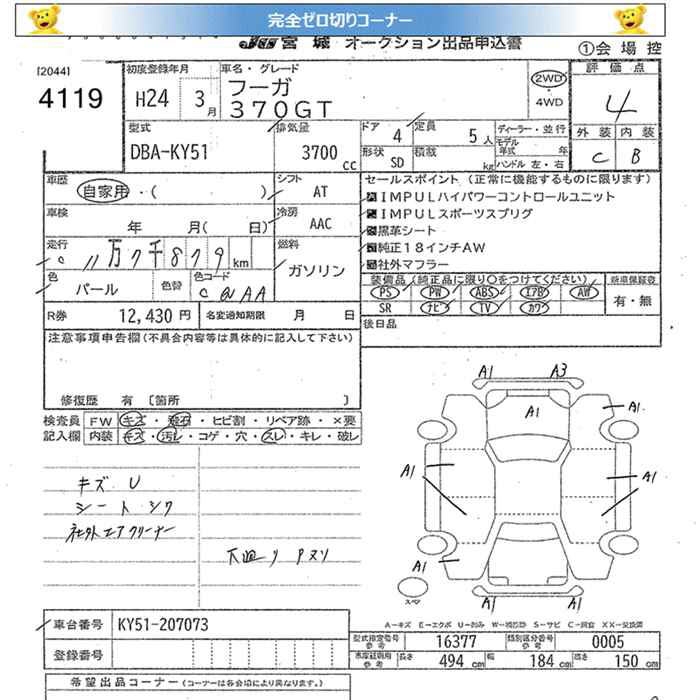 完全ゼロ切りコーナー
JU 宮城 オークション出品申込書
①会場控
[2044]
4119
初度登録年月
H24 3月
車名・グレード
フーガ
370GT
2WD
4WD
評価点
4
外装 内装
C B
型式
DBA-KY51
排気量
3700 CC
ドア 4
定員 5人
形状 SD
積載 kg
ディーラー・並行
モデル年式 年
ハンドル 左・右
車歴
自家用・( )
シフト AT
車検
年 月( 日)
冷房 AAC
走行
11万7千879km
燃料
ガソリン
色
パール
色替
色コード
R券 12,430円
名変通知期限 月 日
セールスポイント (正常に機能するものに限ります)
IMPULハイパワーコントロールユニット
IMPULスポーツスプリグ
黒革シート
純正18インチAW
社外マフラー
装備品(純正品に限り○をつけてください)
PS PW ABS エアB AW
SR ナビ TV カワ
新車保証書
有・無
後日品
注意事項申告欄(不具合内容等は具体的に記入して下さい)
修復歴 有 〔箇所 〕
検査員記入欄
FW キズ・飛石・ヒビ割・リペア跡・×要
内装 キズ・汚レ・コゲ・穴・スレ・キレ・破レ
キズ U
シート シワ
社外エアクリーナー
下廻り Pヌリ
A1 A3
A1
A1
A1
A1
A1
A1 A1
スペア
A-キズ E-エクボ U-凹み W-補修跡 S-サビ C-腐食 XX-交換済
車台番号 KY51-207073
登録番号
型式指定番号 参考 16377
類別区分番号 参考 0005
車庫証明用 参考 長さ 494 cm 幅 184 cm 高さ 150 cm
希望出品コーナー(コーナーは各会場により異なります。)